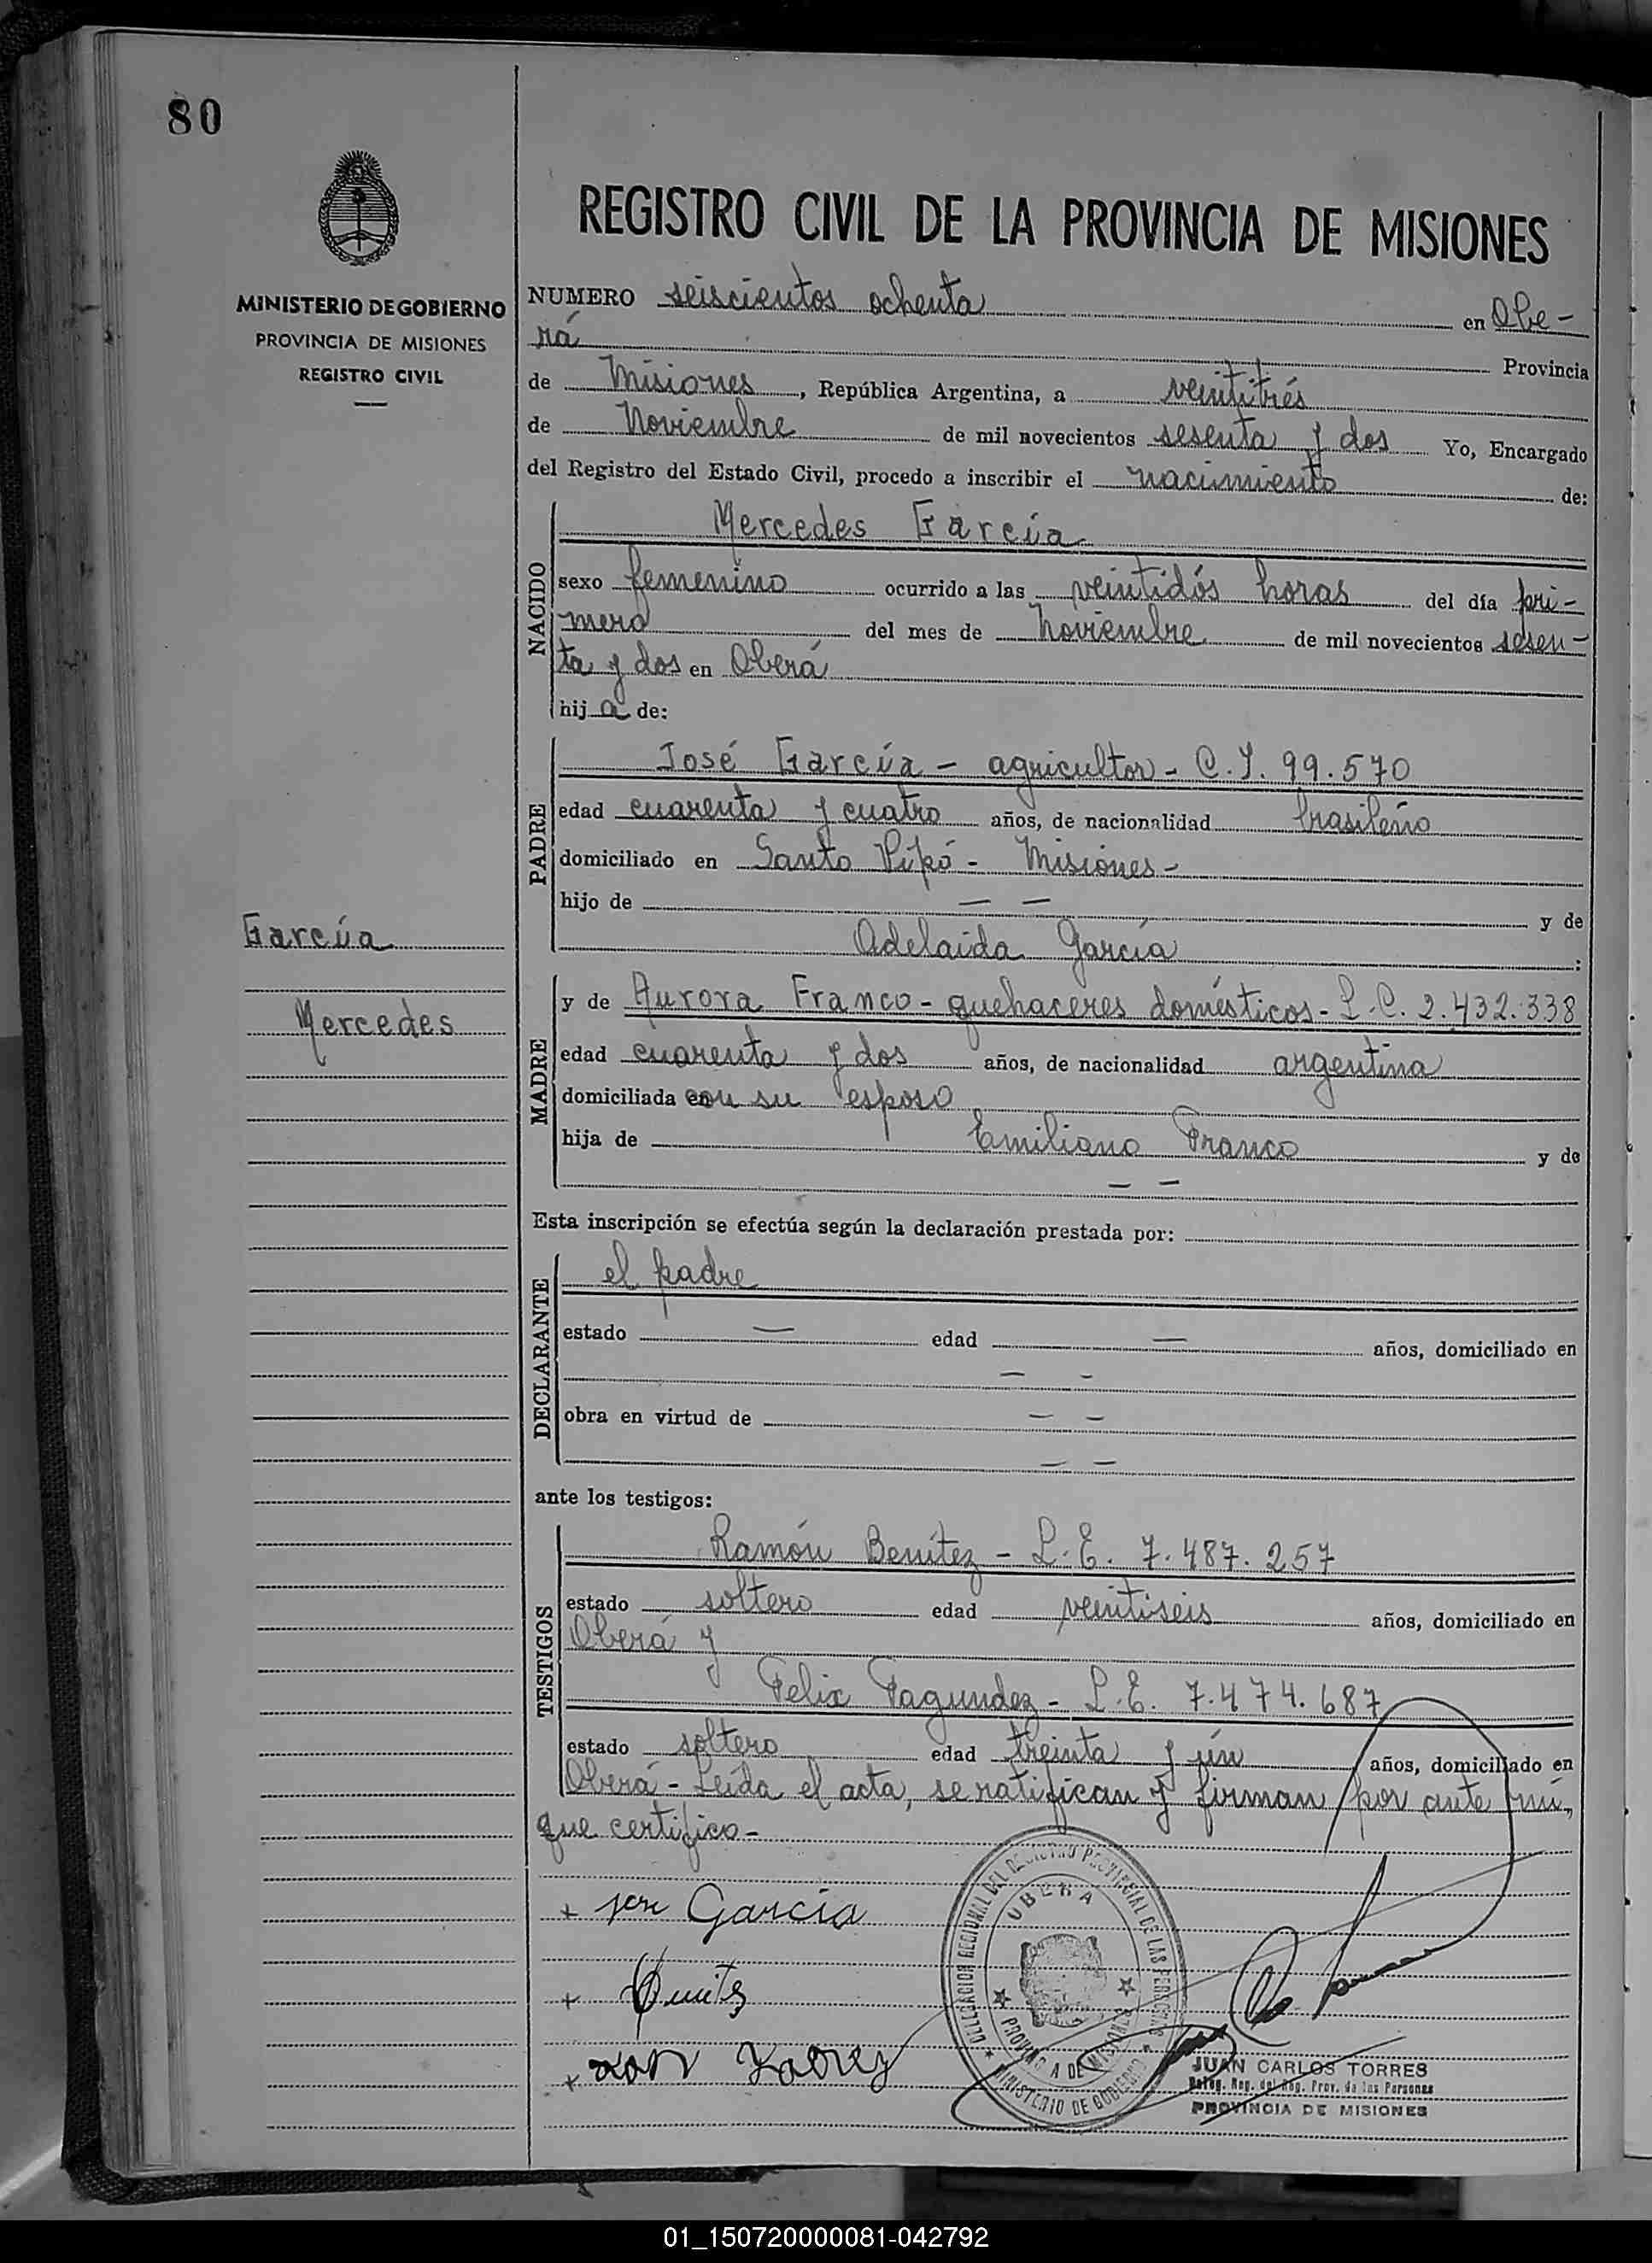 80
MINISTERIO DE GOBIERNO
PROVINCIA DE MISIONES
REGISTRO CIVIL
REGISTRO CIVIL DE LA PROVINCIA DE MISIONES
NUMERO seiscientos ochenta en Obe-
rá Provincia
de Misiones, República Argentina, a veintitrés
de Noviembre de mil novecientos sesenta y dos Yo, Encargado
del Registro del Estado Civil, procedo a inscribir el nacimiento de:
NACIDO
Mercedes García
sexo femenino ocurrido a las veintidós horas del día pri-
mero del mes de Noviembre de mil novecientos sesen-
ta y dos en Oberá
hija de:
PADRE
José García - agricultor - C.I. 99.570
edad cuarenta y cuatro años, de nacionalidad brasileño
domiciliado en Santo Pipó - Misiones -
hijo de — — y de
Adelaida García :
García
Mercedes
MADRE
y de Aurora Franco - quehaceres domésticos - L.C. 2.432.338
edad cuarenta y dos años, de nacionalidad argentina
domiciliada con su esposo
hija de Emiliano Franco y de
— —
Esta inscripción se efectúa según la declaración prestada por:
DECLARANTE
el padre
estado — edad — años, domiciliado en
— -
obra en virtud de — —
— —
ante los testigos:
TESTIGOS
Ramón Benítez - L.E. 7.487.257
estado soltero edad veintiseis años, domiciliado en
Oberá y
Felix Fagundez - L.E. 7.474.687
estado soltero edad treinta y ún años, domiciliado en
Oberá - Leída el acta, se ratifican y firman por ante mí,
que certifico -
+ García
+
+
DELEGACION REGIONAL DEL REGISTRO PROVINCIAL DE LAS PERSONAS
OBERA
PROVINCIA DE MISIONES
MINISTERIO DE GOBIERNO
JUAN CARLOS TORRES
Deleg. Reg. del Reg. Prov. de las Personas
PROVINCIA DE MISIONES
01_150720000081-042792